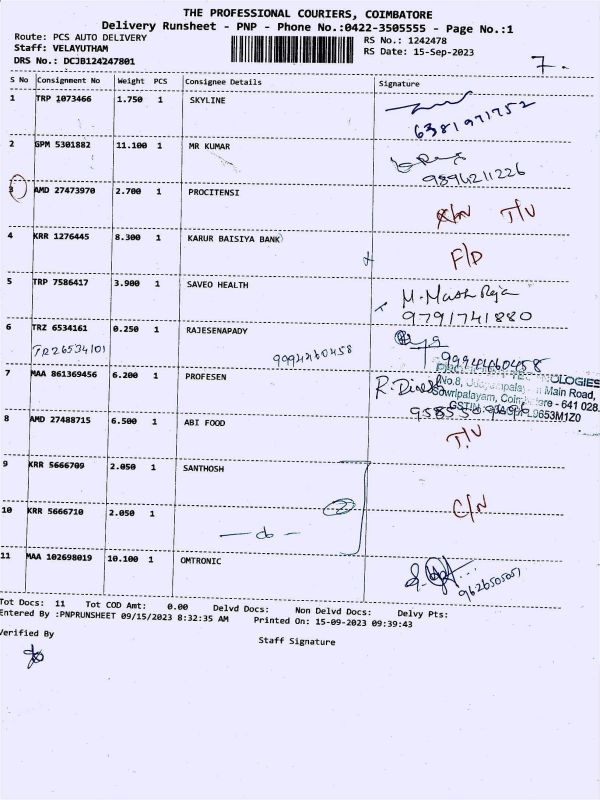 THE PROFESSIONAL COURIERS, COIMBATORE
Delivery Runsheet - PNP - Phone No.:0422-3505555 - Page No.:1
Route: PCS AUTO DELIVERY
RS No.: 1242478
Staff: VELAYUTHAM
RS Date: 15-Sep-2023
DRS No.: DCJB124247801
7.
S No Consignment No Weight PCS Consignee Details Signature
1 TRP 1073466 1.750 1 SKYLINE
6381971752
2 GPM 5301882 11.100 1 MR KUMAR
9894211226
3 AMD 27473970 2.700 1 PROCITENSI
T/V
4 KRR 1276445 8.300 1 KARUR BAISIYA BANK
F/D
5 TRP 7586417 3.900 1 SAVEO HEALTH
9791741880
6 TRZ 6534161 0.250 1 RAJESENAPADY
TRZ6534101 9994460458 9994460458
7 MAA 861369456 6.200 1 PROFESEN R. Dinesh
NOLOGIES
No.8, Main Road,
Sowripalayam, Coimbatore - 641 028.
GSTIN
8 AMD 27488715 6.500 1 ABI FOOD
T/V
9 KRR 5666709 2.050 1 SANTHOSH
C/N
10 KRR 5666710 2.050 1
— do —
11 MAA 102698019 10.100 1 OMTRONIC
9626505051
Tot Docs: 11 Tot COD Amt: 0.00 Delvd Docs: Non Delvd Docs: Delvy Pts:
Entered By :PNPRUNSHEET 09/15/2023 8:32:35 AM Printed On: 15-09-2023 09:39:43
Verified By
Staff Signature